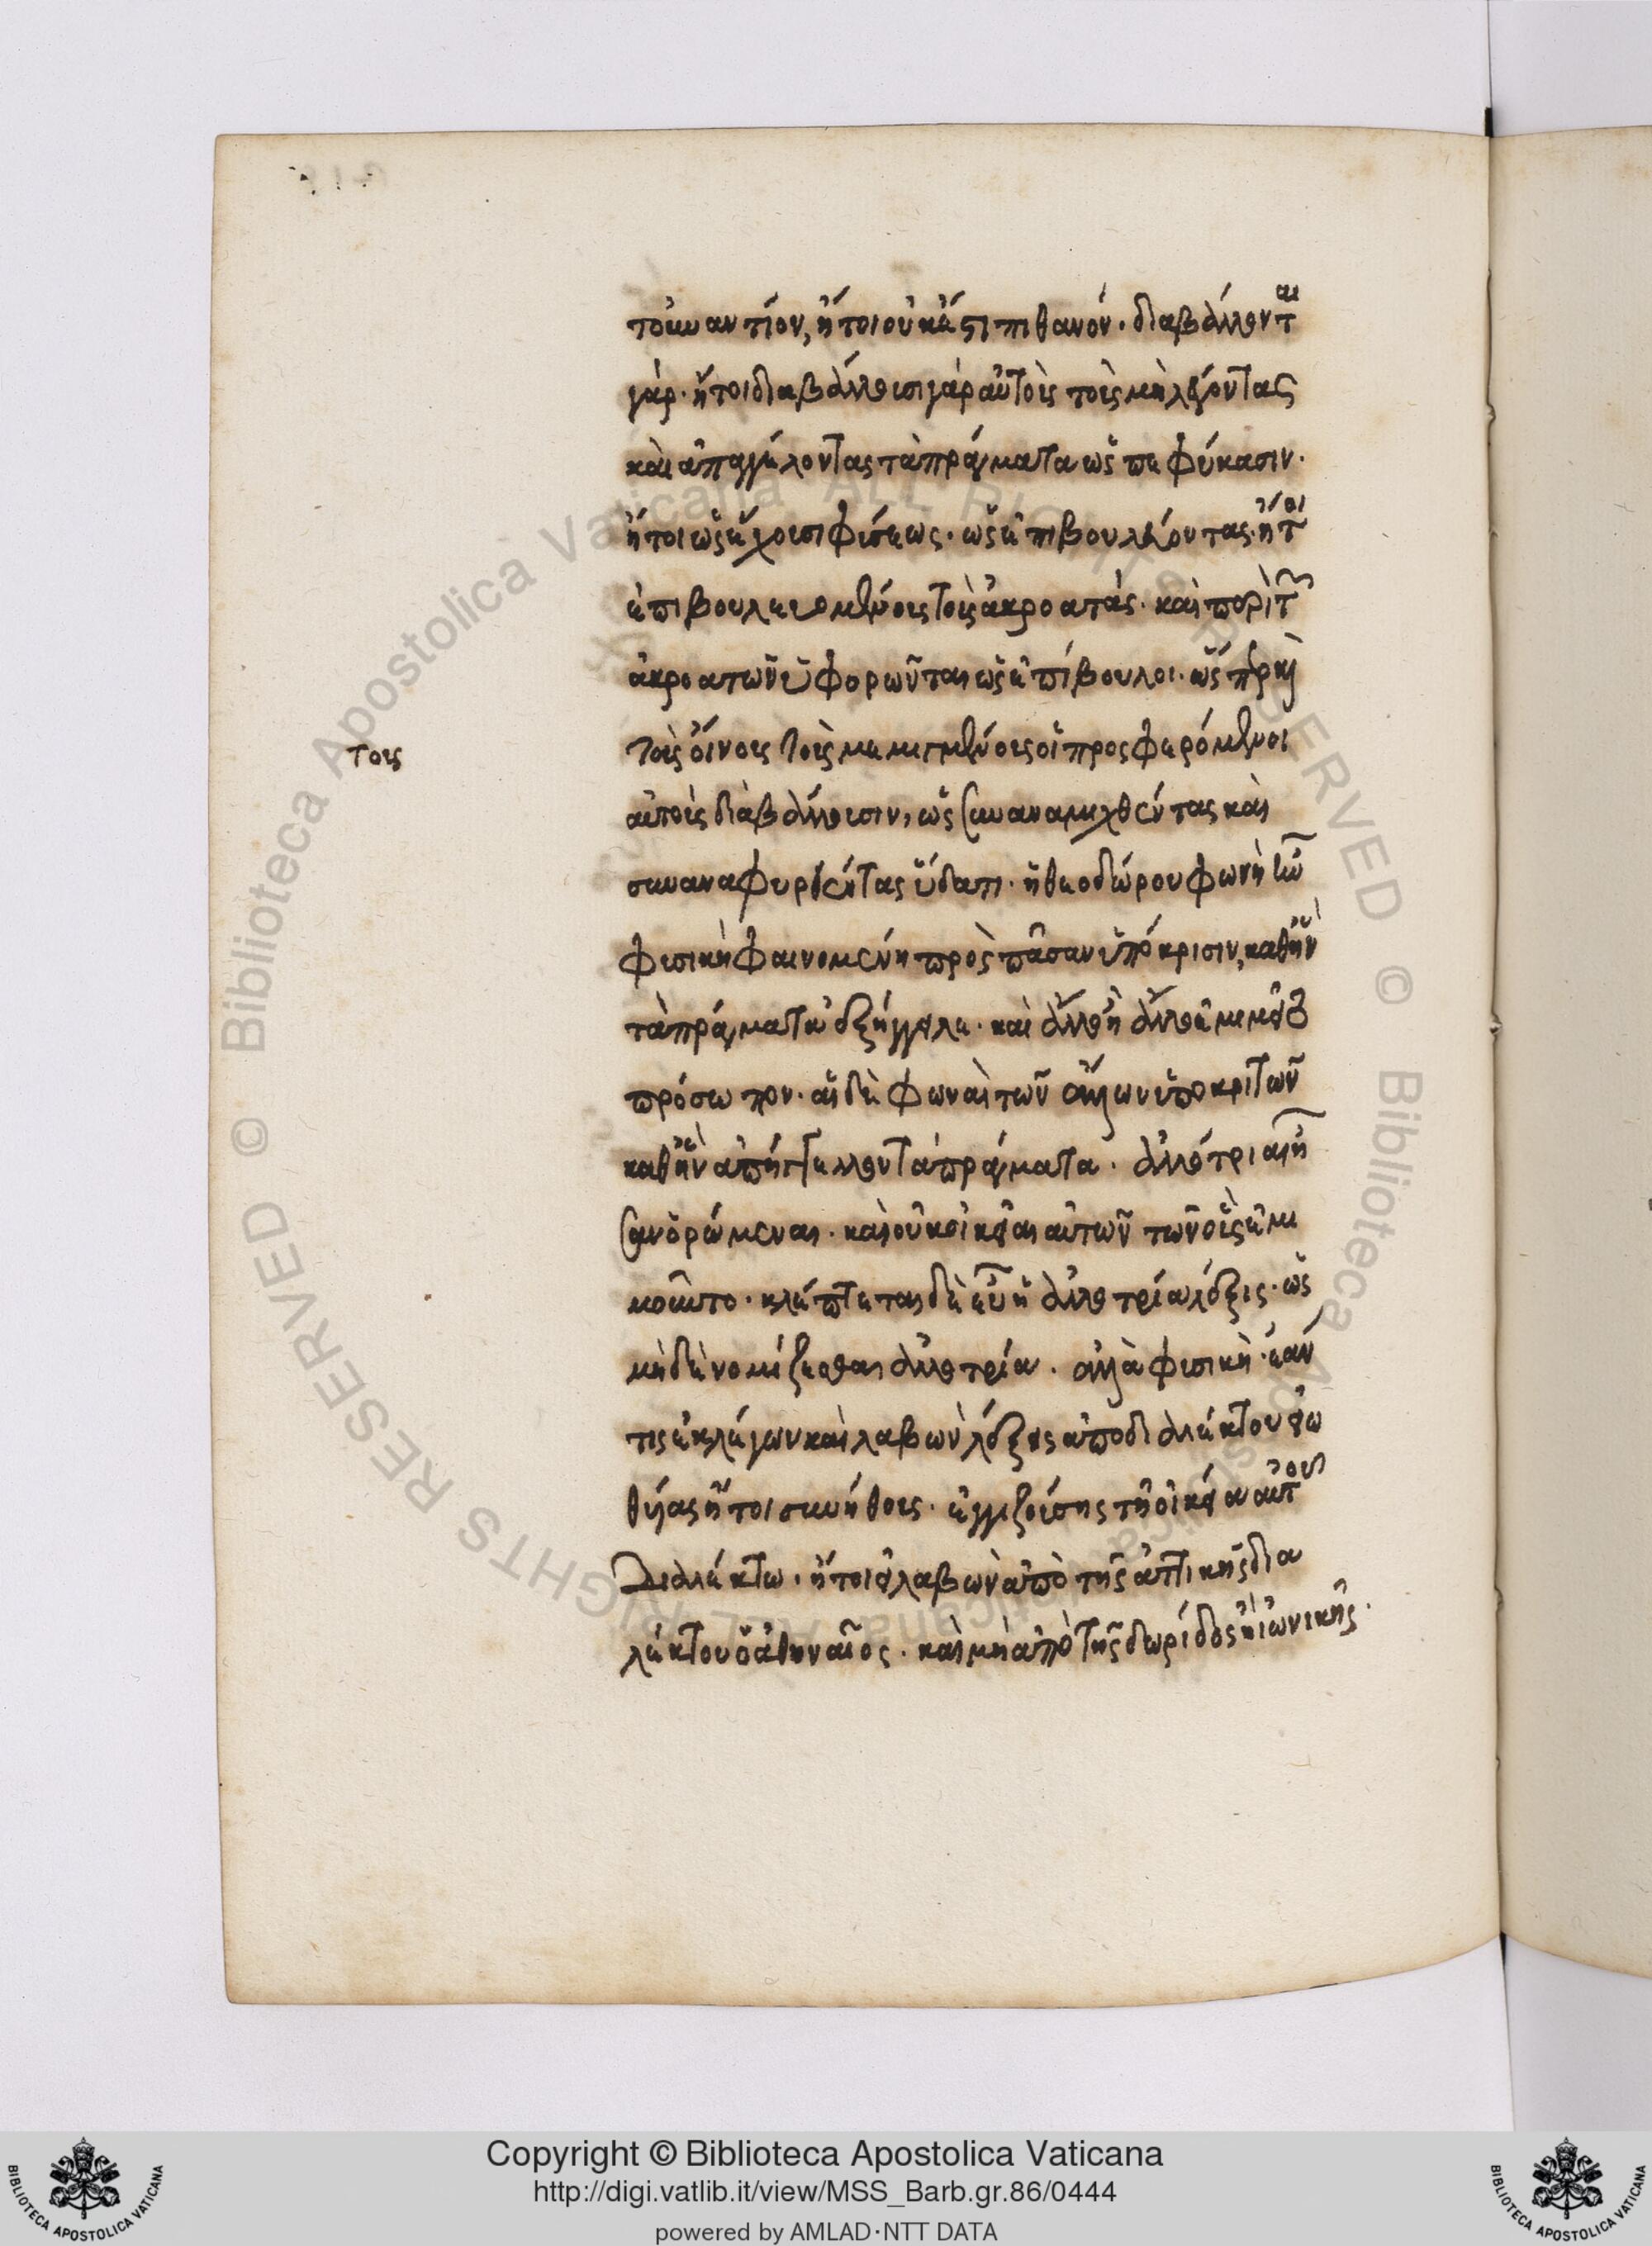 τοὐναντίον, ἤτοι οὐκ ἔστι πιθανόν· διαβάλλονται
γάρ· ἤτοι διαβάλλουσι γάρ αὐτοὺς τοὺς μὴ λέγοντας
καὶ ἀπαγγέλοντας τὰ πράγματα ὡς πεφύκασιν·
ἤτοι ὡς ἔχουσι φύσεως· ὡς ἐπιβουλεύοντας· ἤτοι
ἐπιβουλευομένους τοὺς ἀκροατάς· καὶ παρὰ τῶν
ἀκροατῶν ὑφορῶνται ὡς ἐπίβουλοι· ὥσπερ καὶ
τοὺς οἴνους τοὺς μεμιγμένους οἱ προσφερόμενοι
τους
αὐτοὺς διαβάλλουσιν, ὡς συναναμιχθέντας καὶ
συναναφυρθέντας ὕδατι· ἡ θεοδώρου φωνὴ ἦν
φυσικὴ φαινομένη πρὸς πᾶσαν ὑπόκρισιν, καθ' ἣν
τὰ πράγματα ἐξήγγελε· καὶ ἄλλο ἢ ἄλλο ἐμιμεῖτο
πρόσωπον· αἱ δὲ φωναὶ τῶν ἄλλων ὑποκριτῶν
καθ' ἣν ἀπήγγελλον τὰ πράγματα· ἀλλότριαι ἦ
σαν ὁρώμεναι· καὶ οὐκ οἰκεῖαι αὐτῶν τῶν οὓς ἐμι
μοῦντο· κλέπτεται δὲ εὖ ἡ ἀλλοτρία λέξις· ὡς
μὴ δὲ νομίζεσθαι ἀλλοτρία· ἀλλὰ φυσικὴ· ἐάν
τις ἐκλέγων καὶ λαβὼν λέξεις ἀπὸ διαλέκτου εἰω
θυίας ἤτοι συνήθους· ἐγγιζούσης τῇ οἰκείᾳ αὐτοῦ
διαλέκτω· ἤτοι εἰ λαβὼν ἀπὸ τῆς ἀττικῆς δια
λέκτου ὁ ἀθηναῖος· καὶ μὴ ἀπὸ τῆς δωρίδος ἢ ἰωνικῆς·
Copyright © Biblioteca Apostolica Vaticana
http://digi.vatlib.it/view/MSS_Barb.gr.86/0444
powered by AMLAD·NTT DATA